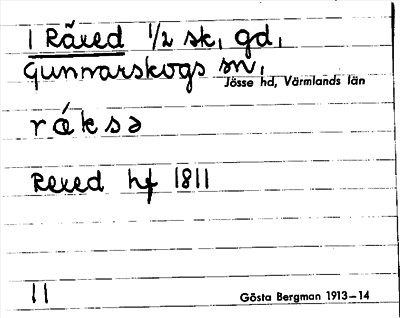 1 Räxed 1/2 sk, gd,
Gunnarskogs sn,
Jösse hd, Värmlands län
rǽksə
Rexed hf 1811
11
Gösta Bergman 1913–14